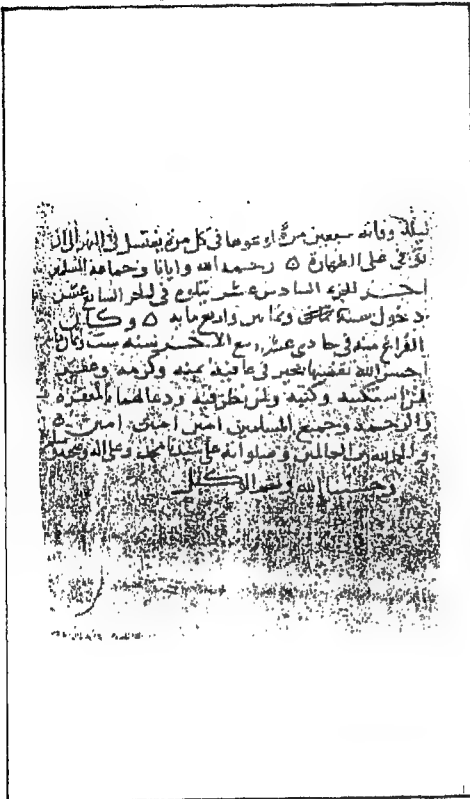 ليلة وفاته سبعين مرة او نحوها في كل مرة يغتسل في النهر الى ان
توفي على الطهارة ه رحمه الله وايانا وجماعة المسلمين
اخر الجزء السادس عشر يتلوه في اخر السابع عشر
دخول سنة وثمانين واربع مايه ه وكان
الفراغ منه في حادي عشر ربيع الاخر سنة ست
احسن الله تقضيها بخير في عافية بمنه وكرمه وغفر
لمن استكتبه وكتبه ولمن نظر فيه ودعا لهما بالمغفرة
والرحمة وجميع المسلمين امين امين امين ه
والحمد لله رب العالمين وصلواته على سيدنا محمد وعلى اله وصحبه
وحسبنا الله ونعم الوكيل